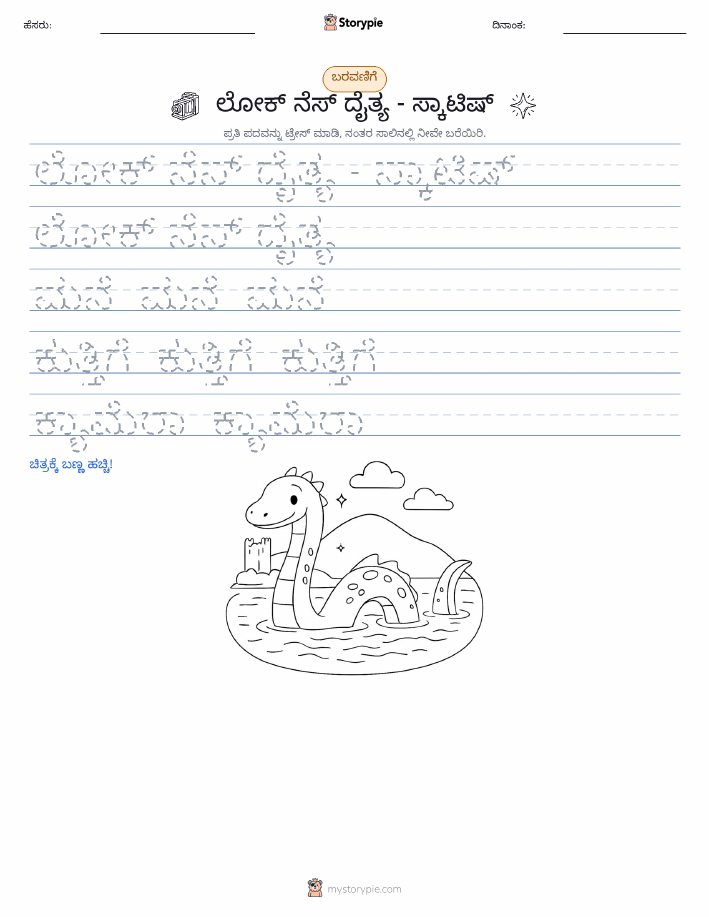 ಹೆಸರು: Storypie ದಿನಾಂಕ:
ಬರವಣಿಗೆ
ಲೋಕ್ ನೆಸ್ ದೈತ್ಯ - ಸ್ಕಾಟಿಷ್
ಪ್ರತಿ ಪದವನ್ನು ಟ್ರೇಸ್ ಮಾಡಿ, ನಂತರ ಸಾಲಿನಲ್ಲಿ ನೀವೇ ಬರೆಯಿರಿ.
ಲೋಕ್ ನೆಸ್ ದೈತ್ಯ - ಸ್ಕಾಟಿಷ್
ಲೋಕ್ ನೆಸ್ ದೈತ್ಯ
ಮನೆ ಮನೆ ಮನೆ
ಕುತ್ತಿಗೆ ಕುತ್ತಿಗೆ ಕುತ್ತಿಗೆ
ಕ್ಯಾಮೆರಾ ಕ್ಯಾಮೆರಾ
ಚಿತ್ರಕ್ಕೆ ಬಣ್ಣ ಹಚ್ಚಿ!
mystorypie.com